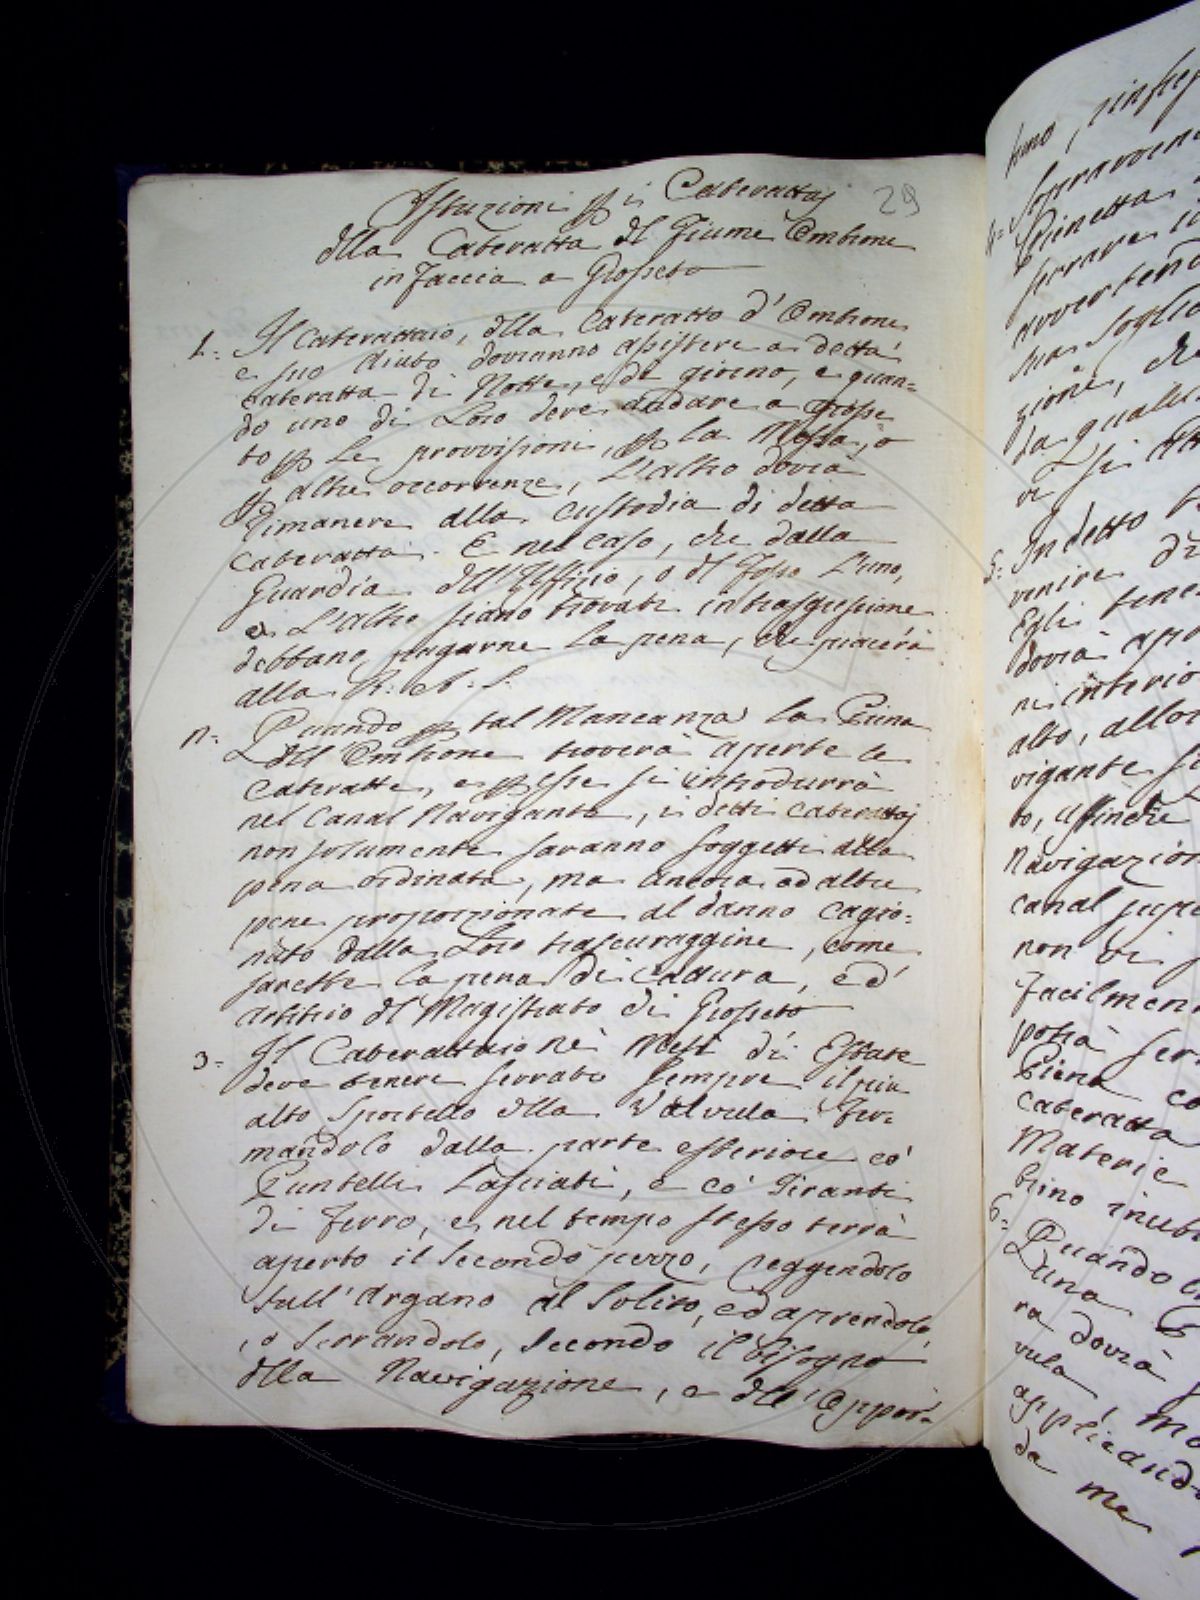 Istruzioni p i Caterattaj
29
dlla Cateratta dl Fiume Ombrone
in faccia a Grosseto
1. Il Caterattaio, dlla Cateratta d'Ombrone
e suo aiuto dovranno assistere a detta
cateratta di Notte, e di giorno, e quan=
do uno di Loro deve andare a Grosse
to p le provvisioni, p la Messa, o
p altre occorrenze, L'altro dovrà
rimanere alla custodia di detta
cateratta. E nel caso, che dalla
Guardia dll'Uffizio, o dl Fosso L'uno,
e L'altro siano trovati in trasgressione
debbano pagarne la pena, che piacerà
alla R:
2. Quando p tal Mancanza la Piena
dll'Ombrone troverà aperte le
cateratte, e p esse si introdurrà
nel Canal Navigante, i detti caterattaj
non solamente saranno soggetti alla
pena ordinata, ma ancora ad altre
pene proporzionate al danno cagio=
nato dalla Loro trascuraggine, come
sarebbe la pena di cattura, ed'
Arbitrio dl Magistrato di Grosseto
3. Il Caterattaio nè Mesi di Estate
deve tenere serrato sempre il più
alto Sportello dlla Valvula fer=
mandolo dalla parte esteriore cò
Puntelli Lasciati, e cò Tiranti
di Ferro, e nel tempo stesso terrà
aperto il Secondo pezzo, reggendolo
sull'Argano al Solito, ed aprendolo,
, o Serrandolo, Secondo il bisogno
dlla Navigazione, e dll'Oppor=
Sopravven
4=
Pienetta
serrare
avverten
sua soglia
zione, che
da qualu
vi si
5: In detto
venire
Egli
dovrà
ni interio
alto, allo
vigante
to, affinchè
Navigazion
canal
non vi
Facilmen
potrà
Piena
cateratta
Materie
6= Quando
Luna
ra dovrà
vula,
applicand
da me